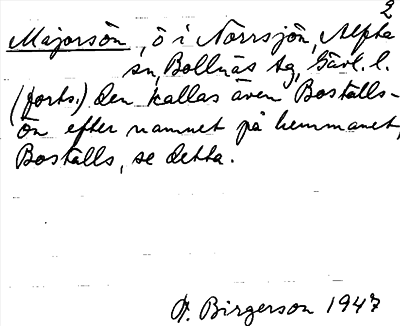 2
Majorsön, ö i Norrsjön, Alfta
sn, Bollnäs tg, Gävl. l.
(forts.) Den kallas även Boställs-
ön efter namnet på hemmanet,
Boställs, se detta.
A. Birgerson 1947